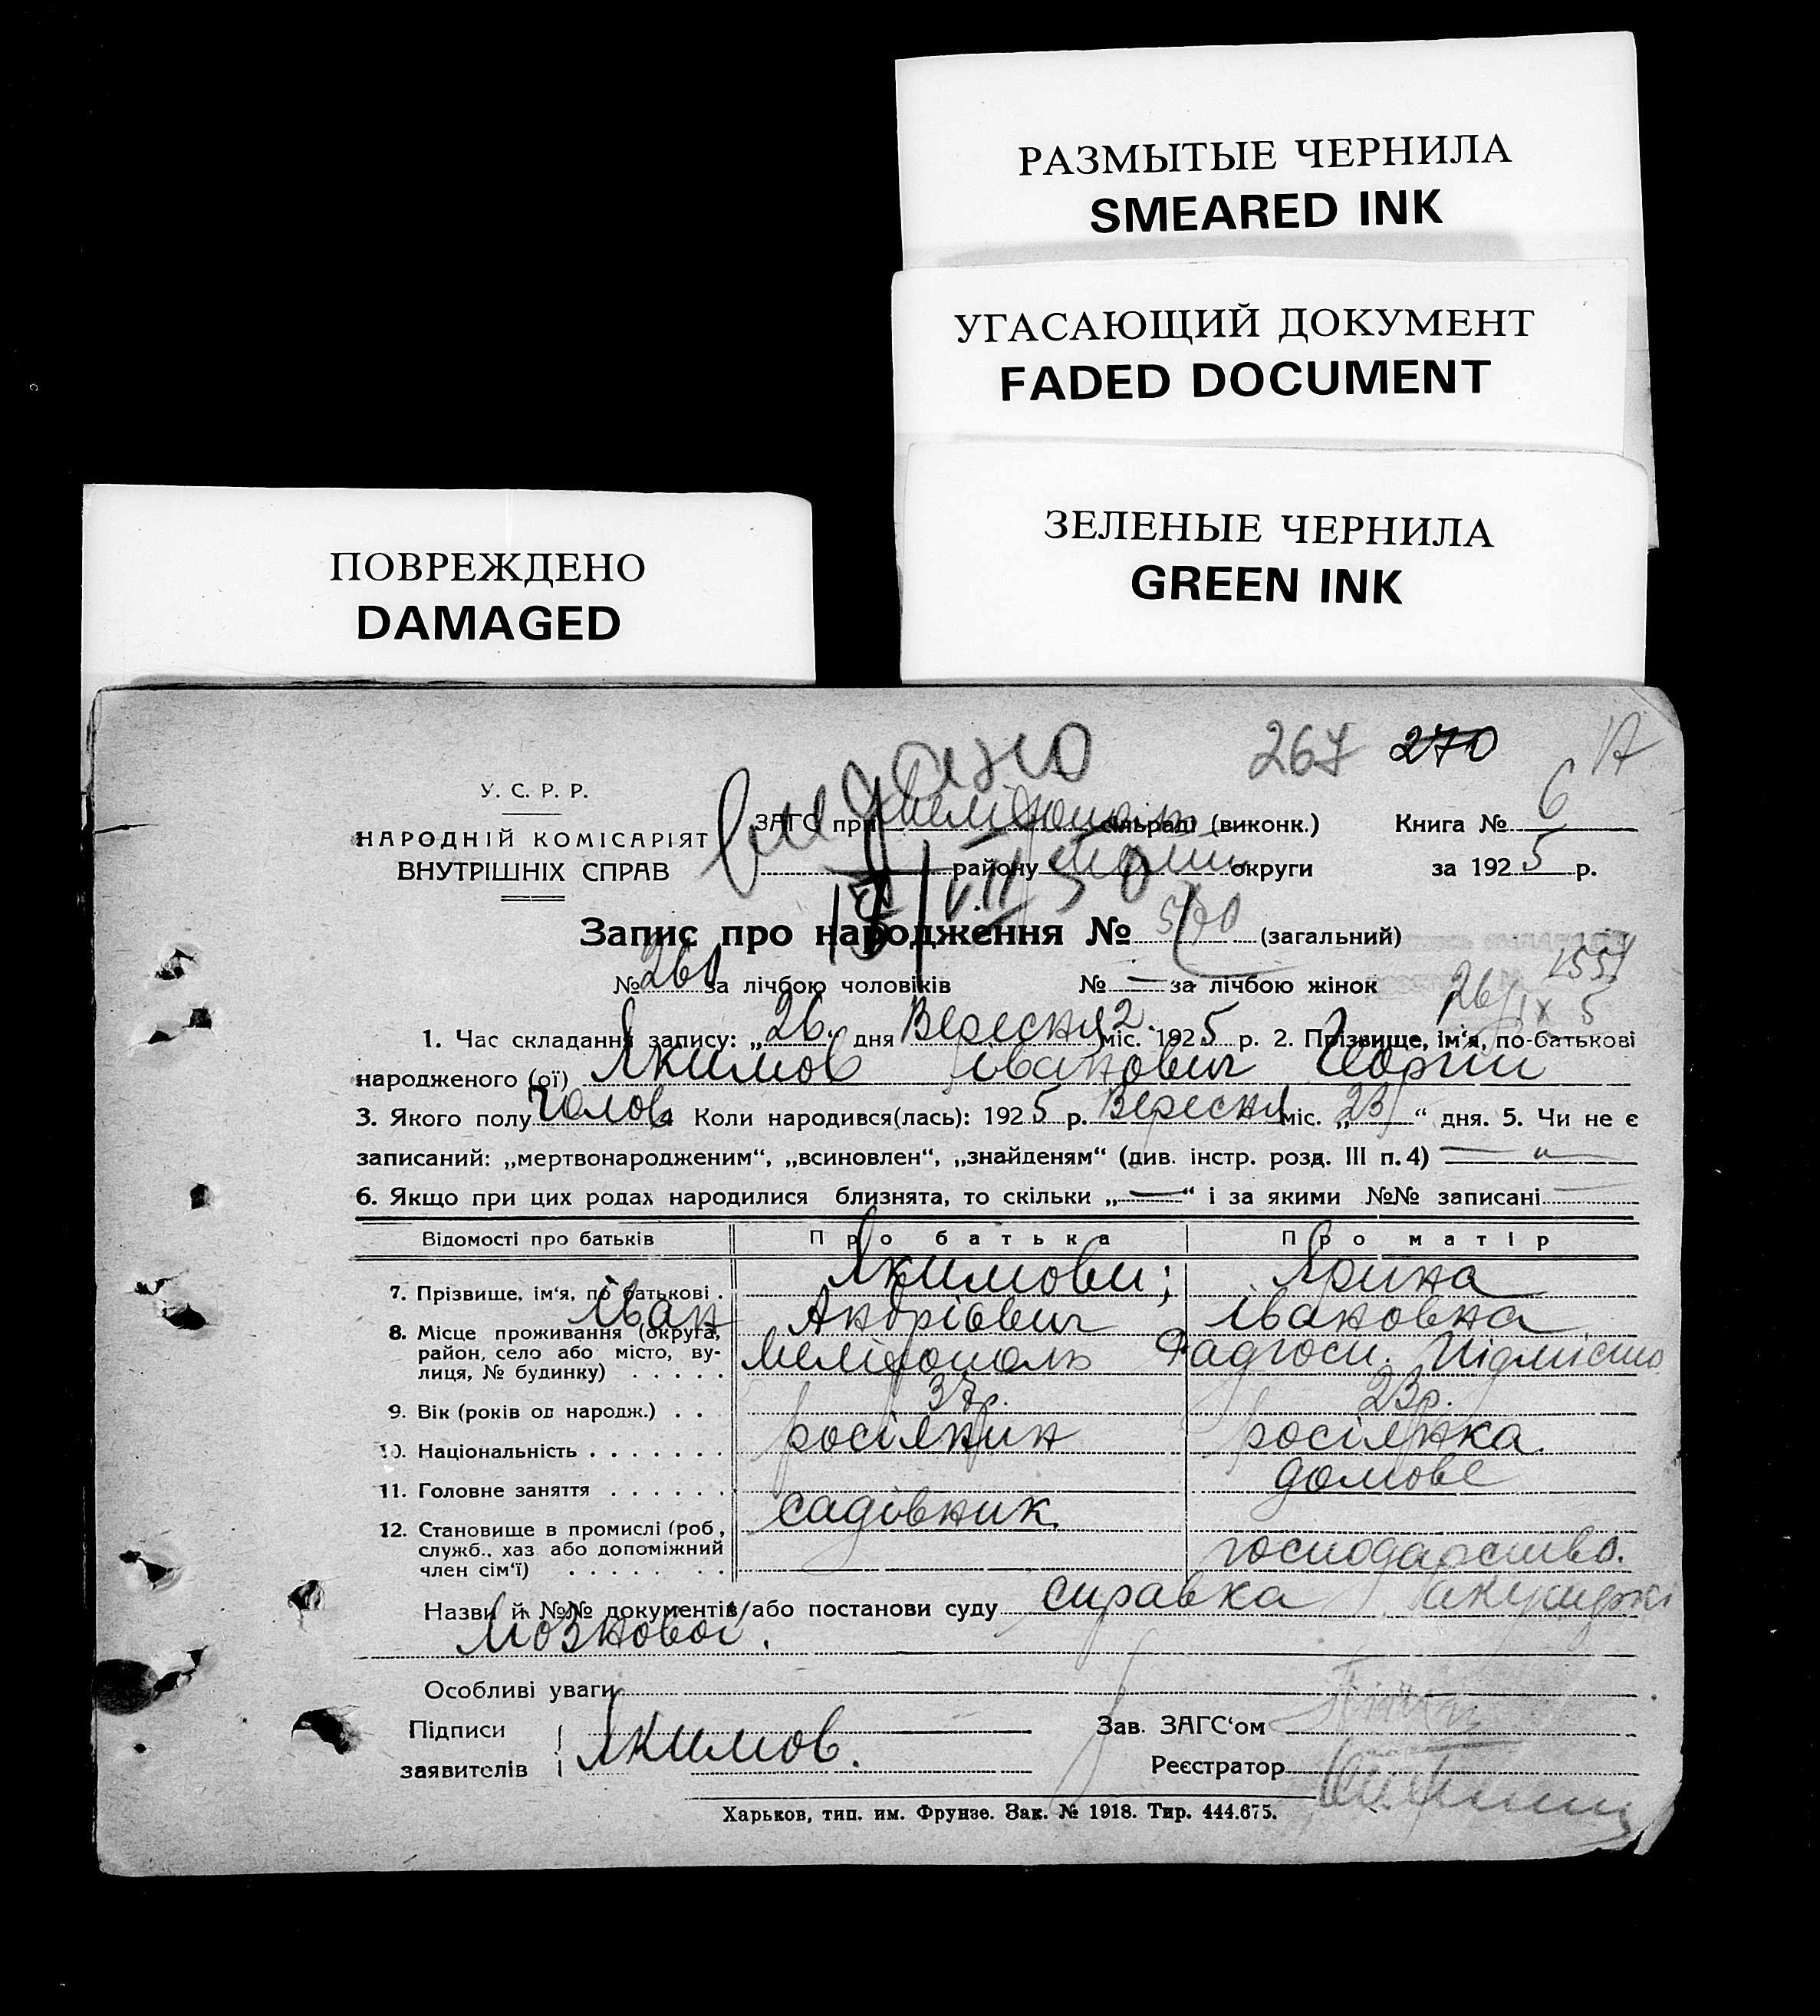 РАЗМЫТЫЕ ЧЕРНИЛА
SMEARED INK
УГАСАЮЩИЙ ДОКУМЕНТ
FADED DOCUMENT
ЗЕЛЕНЫЕ ЧЕРНИЛА
GREEN INK
ПОВРЕЖДЕНО
DAMAGED
видано 267 270
У. С. Р. Р.
НАРОДНІЙ КОМІСАРІЯТ
ВНУТРІШНІХ СПРАВ
ЗАГС при сільраді (виконк.) Книга № 6
району округи за 1925 р.
Запис про народження № 570 (загальний)
№ 260 за лічбою чоловіків № — за лічбою жінок
26/IX 5
1. Час складання запису: „26“ дня Вересня міс. 1925 р. 2. Прізвище, ім‘я, по-батькові
народженого (ої) Якимов Іванович Георгій
3. Якого полу Чолов. Коли народився(лась): 1925 р. Вересня міс. „23“ дня. 5. Чи не є
записаний: „мертвонародженим“, „всиновлен“, „знайденям“ (див. інстр. розд. III п. 4) — „ —
6. Якщо при цих родах народилися близнята, то скільки „—“ і за якими №№ записані —
Відомості про батьків Про батька Про матір
7. Прізвище, ім‘я, по батькові . Якимови; Ярина
Іван Андрієвич Івановна
8. Місце проживання (округа, район, село або місто, вулиця, № будинку) . . . . . Мелітополь Радгосп.
9. Вік (років од народж.) . . 37р. 23р.
10. Національність . . . . . . . росіянин росіянка.
11. Головне заняття . . . . . . садівник домове
12. Становище в промислі (роб., служб., хаз. або допоміжний член сім‘ї) . . . . . . . . господарство.
Назви й №№ документів/або постанови суду справка акушерки
Мозкової.
Особливі уваги
Підписи Зав. ЗАГС‘ом
заявителів Якимов. Реєстратор
Харьков, тип. им. Фрунзе. Зак. № 1918. Тир. 444.675.